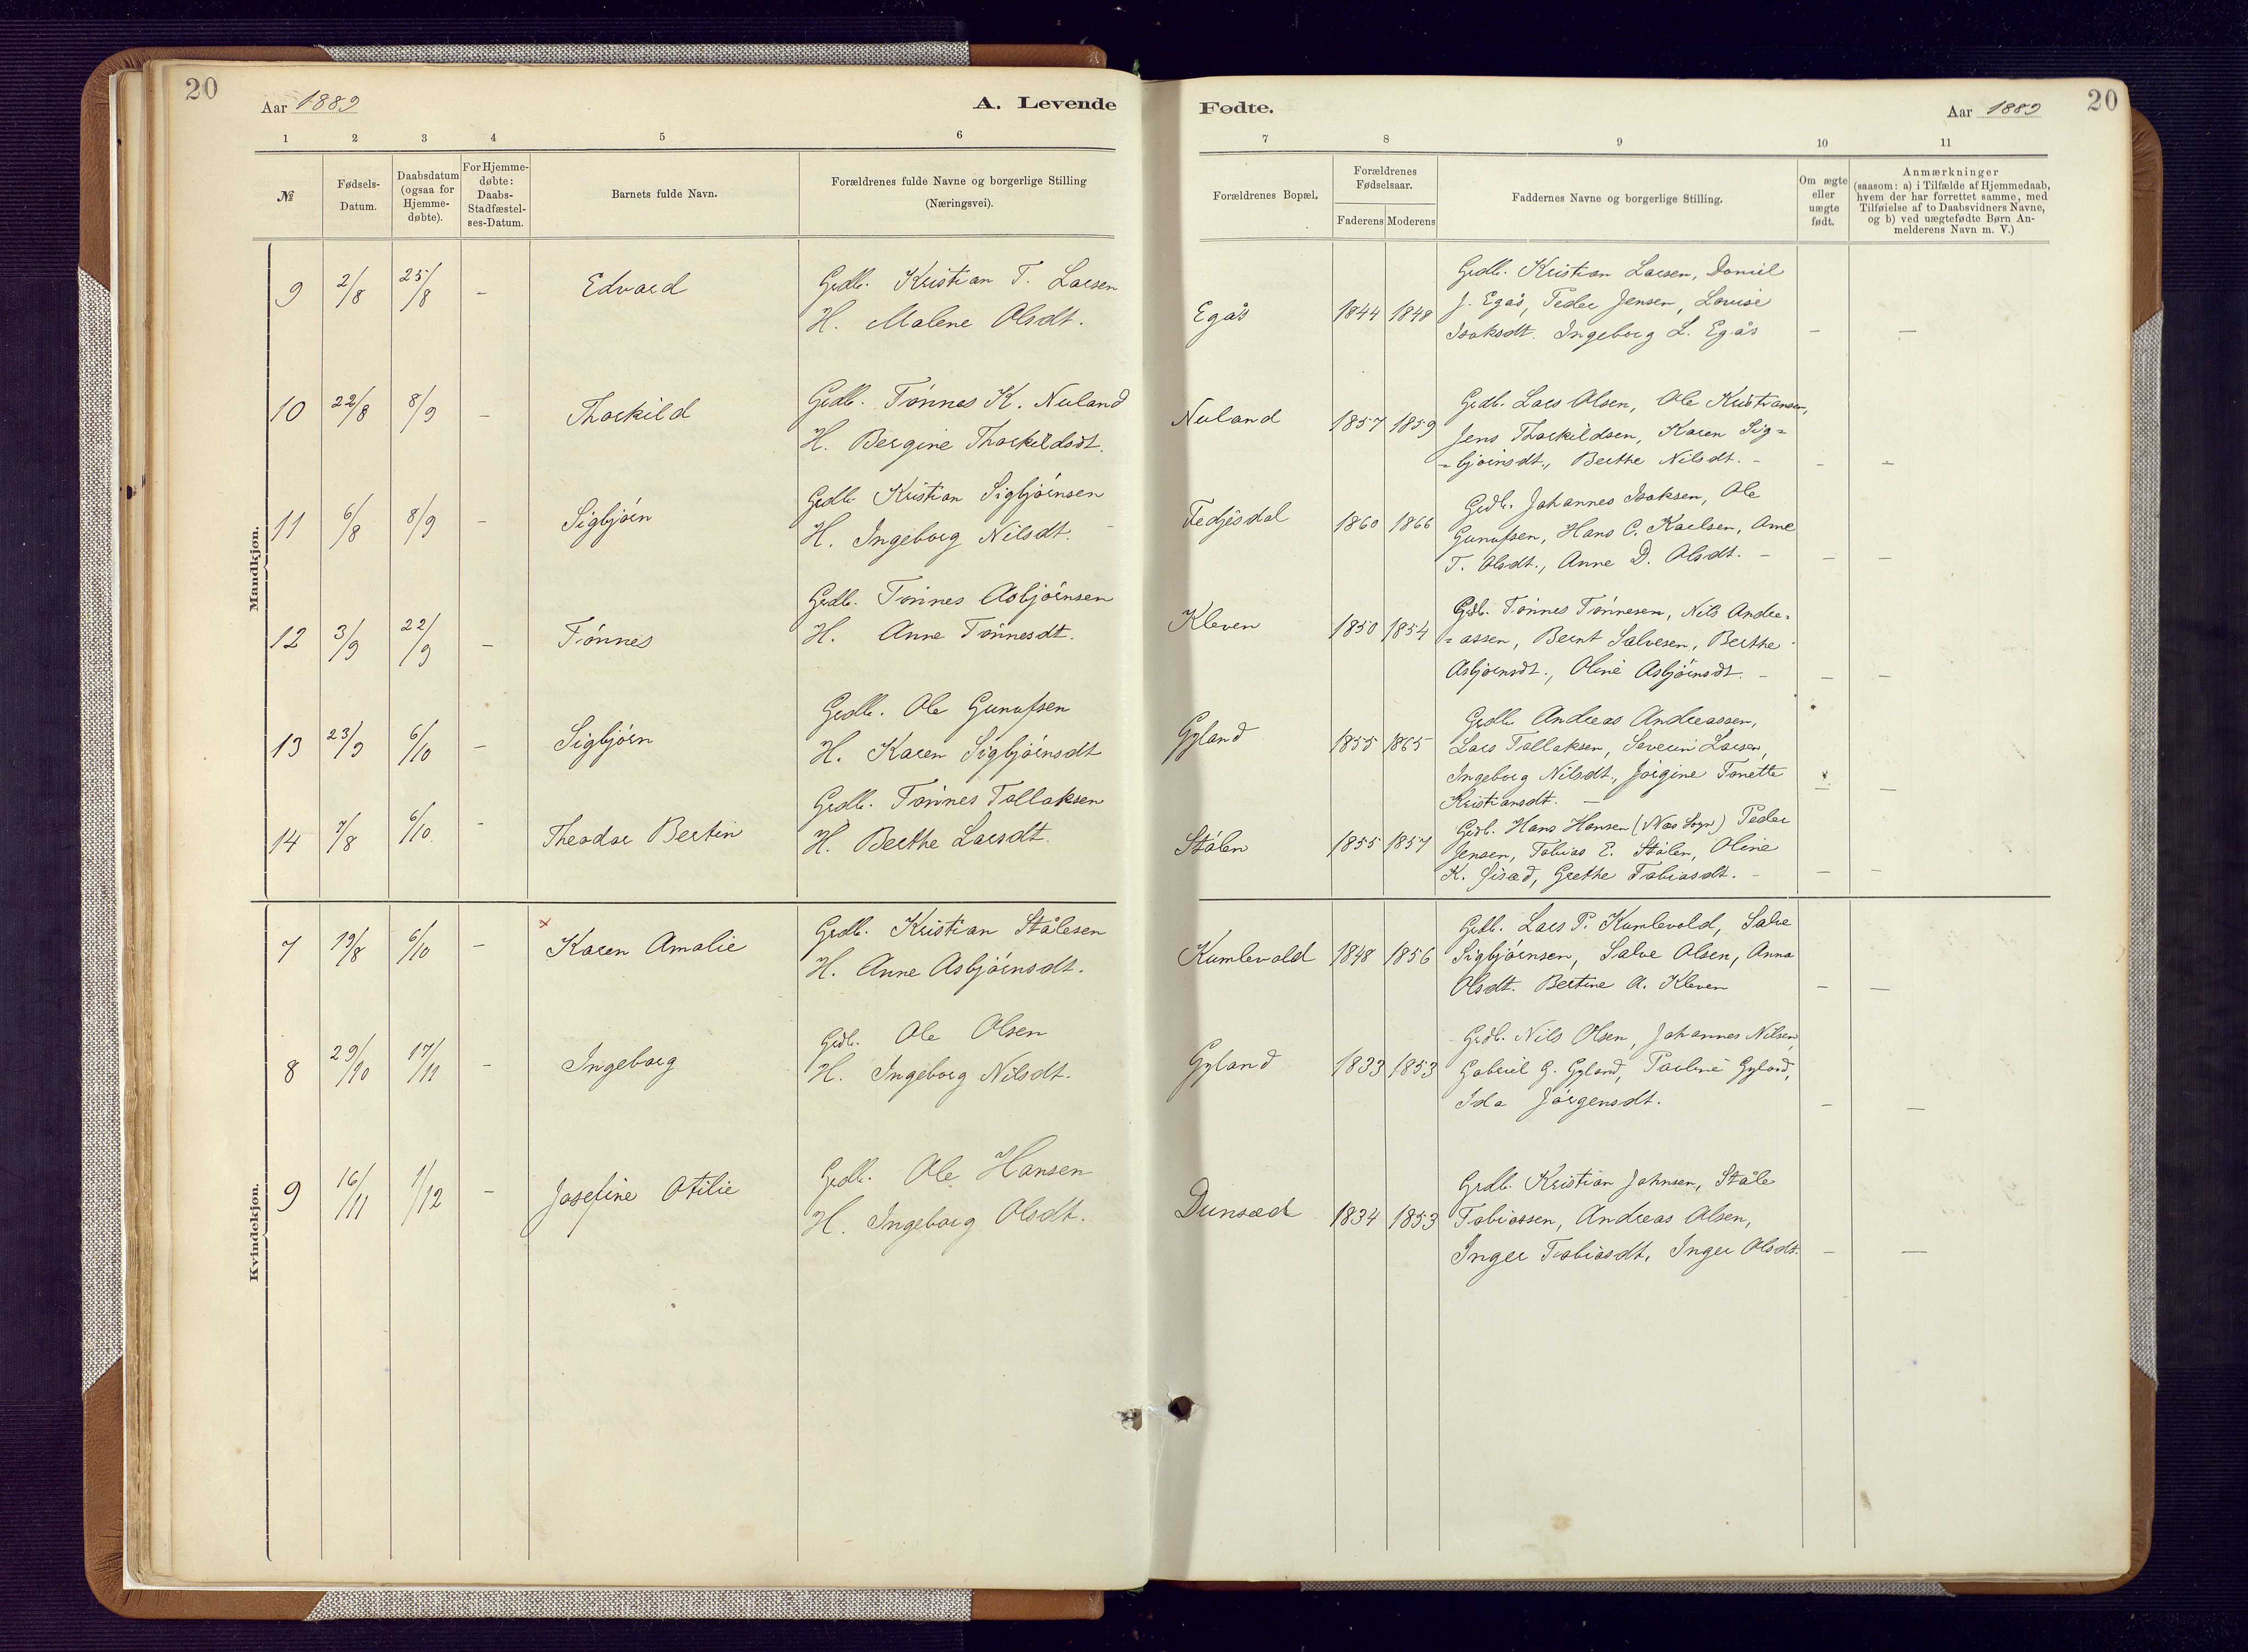 20
Aar 1889
A. Levende
Fødte.
Aar 1889
20
1 2 3 4 5 6
7 8 9 10 11
№
Fødsels-
Datum.
Daabsdatum
(ogsaa for
Hjemme-
døbte).
For Hjemme-
døbte:
Daabs-
Stadfæstel-
ses-Datum.
Barnets fulde Navn.
Forældrenes fulde Navne og borgerlige Stilling
(Næringsvei).
Forældrenes Bopæl.
Forældrenes
Fødselsaar.
Faderens Moderens
Faddernes Navne og borgerlige Stilling.
Om ægte
eller
uægte
født.
Anmærkninger
(saasom: a) i Tilfælde af Hjemmedaab,
hvem der har forrettet samme, med
Tilføielse af to Daabsvidners Navne,
og b) ved uægtefødte Børn An-
melderens Navn m. V.)
Mandkjøn.
9 2/8 25/8 – Edvard
Grdb. Kristian T. Larsen
H. Malene Olsdt.
Egås 1844 1848
Grdb. Kristian Larsen, Daniel
J. Egås, Peder Jensen, Louise
Isaksdt. Ingeborg L. Egås – –
10 22/8 8/9 – Thorkild
Grdb. Tønnes K. Nuland
H. Bergine Thorkildsdt.
Nuland 1857 1859
Grdb. Lars Olsen, Ole Kristiansen,
Jens Thorkildsen, Karen Sig=
=bjørnsdt., Berthe Nilsdt. – – –
11 6/8 8/9 – Sigbjørn
Grdb. Kristian Sigbjørnsen
H. Ingeborg Nilsdt. –
Fedjesdal 1860 1866
Grdb. Johannes Isaksen, Ole
Gunufsen, Hans C. Karlsen, Arne
T. Olsdt., Anne D. Olsdt. – – –
12 3/9 22/9 – Tønnes
Grdb. Tønnes Asbjørnsen
H. Anne Tønnesdt.
Kleven 1850 1854
Grdb. Tønnes Tønnesen, Nils Andre=
=assen, Bernt Salvesen, Berthe
Asbjørnsdt., Oline Asbjørnsdt. – – –
13 23/9 6/10 – Sigbjørn
Grdb. Ole Gunufsen
H. Karen Sigbjørnsdt
Gyland 1855 1865
Grdb. Andreas Andreassen,
Lars Tallaksen, Severin Larsen,
Ingeborg Nilsdt., Jørgine Tonette
Kristiansdt. – – –
14 7/8 6/10 – Theodor Bertin
Grdb. Tønnes Tallaksen
H. Berthe Larsdt.
Stålen 1855 1857
Grdb. Hans Hansen (Næs Sogn) Peder
Jensen, Tobias E. Stålen, Oline
K. , Grethe Tobiasdt. – – –
Kvindekjøn.
7 19/8 6/10 – × Karen Amalie
Grdb. Kristian Stålesen
H. Anne Asbjørnsdt.
Kumlevold 1848 1856
Grdb. Lars P. Kumlevold, Salve
Sigbjørnsen, Salve Olsen, Anna
Olsdt. Bertine A. Kleven – –
8 29/10 17/11 – Ingeborg
Grdb. Ole Olsen
H. Ingeborg Nilsdt.
Gyland 1833 1853
Grdb. Nils Olsen, Johannes Nilsen,
Gabriel G. Gyland, Pauline Gyland,
Ida Jørgensdt. – –
9 16/11 1/12 – Josefine Otilie
Grdb. Ole Hansen
H. Ingeborg Olsdt.
Dunsæd 1834 1853
Grdb. Kristian Johnsen, Ståle
Tobiassen, Andreas Olsen,
Inger Tobiasdt., Inger Olsdt. – –